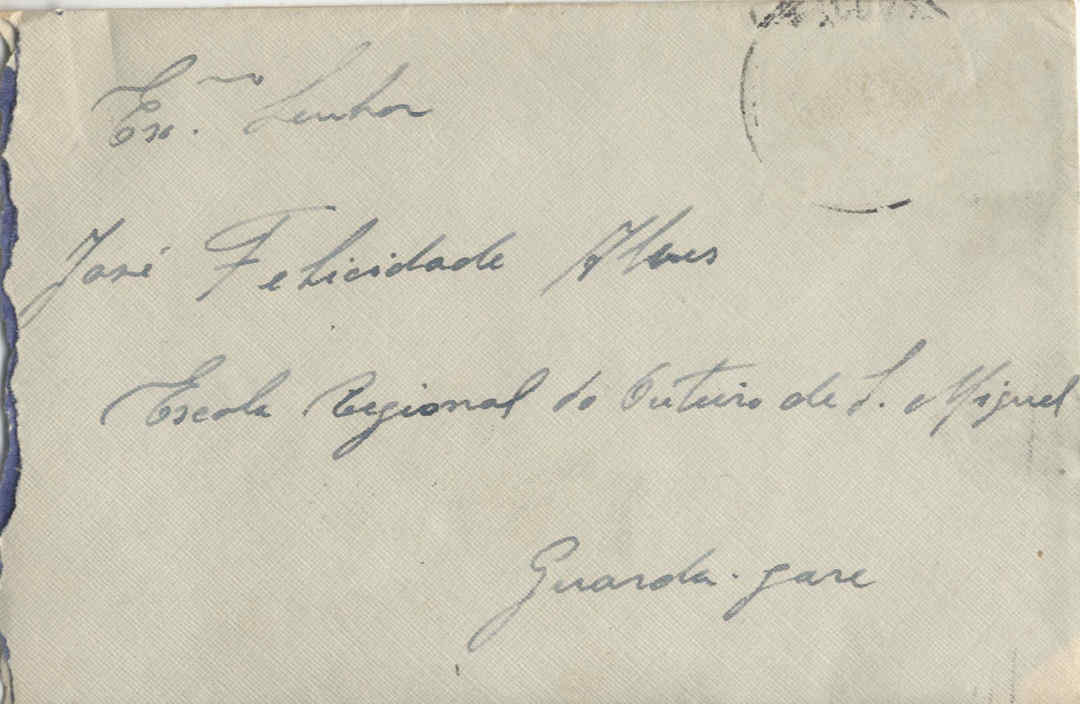 Ex.mo Senhor
José Felicidade Alves
Escola Regional do Outeiro de S. Miguel
Guarda-gare